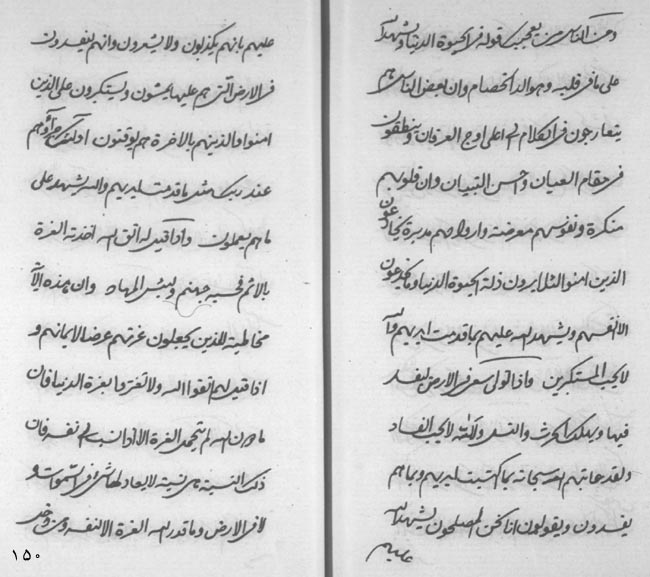 ومن الناس من يعجبك قوله فى الحيوة الدنيا ويشهد الله
على ما فى قلبه وهو الد الخصام وان بعض الناس هم
يتعارجون فى الكلام الى اعلى اوج العرفان وينطقون
فى مقام العيان واحسن التبيان وان قلوبهم
منكرة ونفوسهم معرضة وارواحهم مدبرة يخادعون
الذين امنوا لئلا يرون ذلة الحيوة الدنيا وما يخدعون
الا انفسهم ويشهد الله عليهم بما قدمت ايديهم والله
لا يحب المستكبرين واذا تولى سعى فى الارض ليفسد
فيها ويهلك الحرث والنسل والله لا يحب الفساد
ولقد عاتبهم الله سبحانه بما كسبت ايديهم وبما هم
يفسدون ويقولون انا نحن المصلحون يشهد الله
عليهم
عليهم بانهم يكذبون ولا يشعرون وانهم يفسدون
فى الارض التى هم عليها يمشون ويستكبرون على الذين
امنوا والذينهم بالاخرة هم يوقنون اولئك جزآؤهم
عند ربك مثل ما قدمت ايديهم والله يشهد على
ما هم يعملون واذا قيل له اتق الله اخذته العزة
بالاثم فحسبه جهنم ولبئس المهاد وان هذه الآية
مخاطبة للذين يجعلون عزتهم عرضا لايمانهم و
اذا قيل لهم اتقوا الله ولا تغتروا بعزة الدنيا فان
ما دون الله لم يتحمل العزة الا اذا نسب الى نفسه فان
ذلك النسبة هى نسبة لا يعادلها شئ فى السموات و
لا فى الارض وما قدر الله العزة الا لنفسه ومن
١٥٠